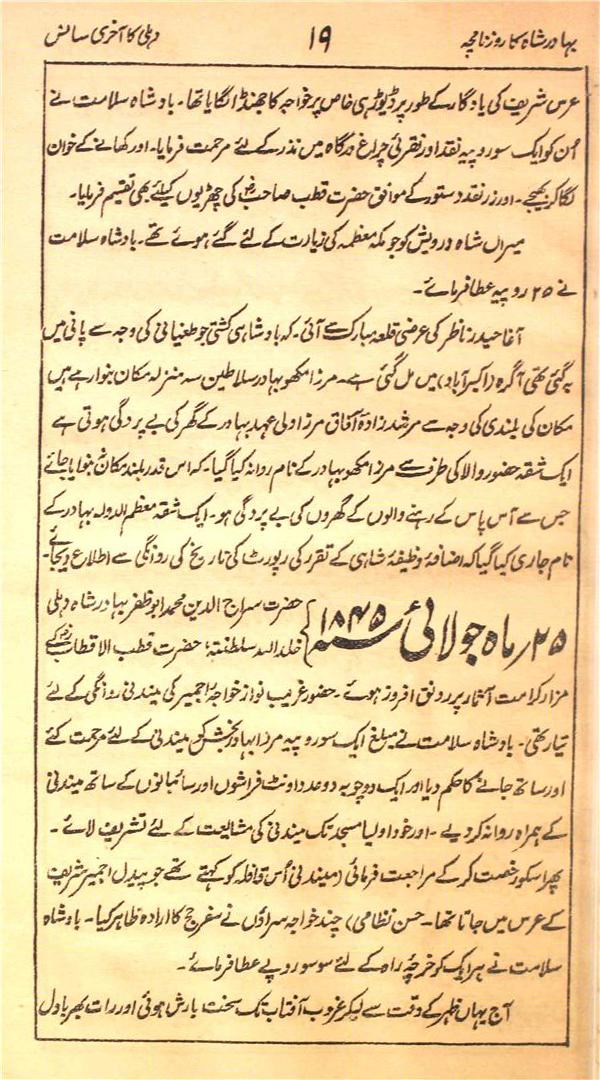 بہادر شاہ کا روزنامچہ
۱۹
دہلی کا آخری سانس
عرس شریف کی یادگار کے طور پر ڈیوڑہی خاص پر خواجہ کا جھنڈا لگایا تھا۔ بادشاہ سلامت نے
اُن کو ایک سو روپیہ نقد اور نقرئی چراغ درگاہ میں نذر کے لئے مرحمت فرمایا۔ اور کھانے کے خوان
لگا کر بھیجے۔ اور زر نقد دستور کے موافق حضرت قطب صاحبؒ کی چھڑیوں کیلئے بھی تقسیم فرمایا۔
میراں شاہ درویش کو جو مکہ معظمہ کی زیارت کے لئے گئے ہوئے تھے۔ بادشاہ سلامت
نے ۲۵ روپیہ عطا فرمائے۔
آغا حیدر ناظر کی عرضی قلعہ مبارک سے آئی۔ کہ بادشاہی کشتی جو طغیانی کی وجہ سے پانی میں
بہ گئی تھی آگرہ (اکبر آباد) میں مل گئی ہے۔ مرزا مکھو بہادر سلاطین سہ منزلہ مکان بنوا رہے ہیں
مکان کی بلندی کی وجہ سے مرشد زادۂ آفاق مرزا ولی عہد بہادر کے گھر کی بے پردگی ہوتی ہے
ایک شقہ حضور والا کی طرف سے مرزا مکھو بہادر کے نام روانہ کیا گیا۔ کہ اس قدر بلند مکان نہ بنوایا جائے
جس سے آس پاس کے رہنے والوں کے گھروں کی بے پردگی ہو۔ ایک شقہ معظم الدولہ بہادر کے
نام جاری کیا گیا کہ اضافۂ وظیفۂ شاہی کے تقرر کی رپورٹ کی تاریخ کی روانگی سے اطلاع دیجائے۔
۲۵ر ماہ جولائی ۱۸۴۵ء
حضرت سراج الدین محمد ابو ظفر بہادر شاہ دہلی
خلد اللہ سلطنتہ؛ حضرت قطب الاقطابؒ کے
مزار کرامت آثار پر رونق افروز ہوئے۔ حضور غریب نواز خواجۂ اجمیر کی میندنی روانگی کے لئے
تیار تھی۔ بادشاہ سلامت نے مبلغ ایک سو روپیہ مرزا بہادر بخش کو میندنی کے لئے مرحمت کئے
اور ساتھ جانے کا حکم دیا اور ایک دو چوبہ دو عدد اونٹ فراشوں اور سائبانوں کے ساتھ میندنی
کے ہمراہ روانہ کر دیے۔ اور خود اولیا مسجد تک میندنی کی مشایعت کے لئے تشریف لائے۔
پھر اسکو رخصت کر کے مراجعت فرمائی (میندنی اُس قافلہ کو کہتے تھے جو پیدل اجمیر شریف
کے عرس میں جاتا تھا۔ حسن نظامی) چند خواجہ سراؤں نے سفر حج کا ارادہ ظاہر کیا۔ بادشاہ
سلامت نے ہر ایک کو خرچۂ راہ کے لئے سو سو روپے عطا فرمائے۔
آج یہاں ظہر کے وقت سے لیکر غروب آفتاب تک سخت بارش ہوئی اور رات بھر بادل